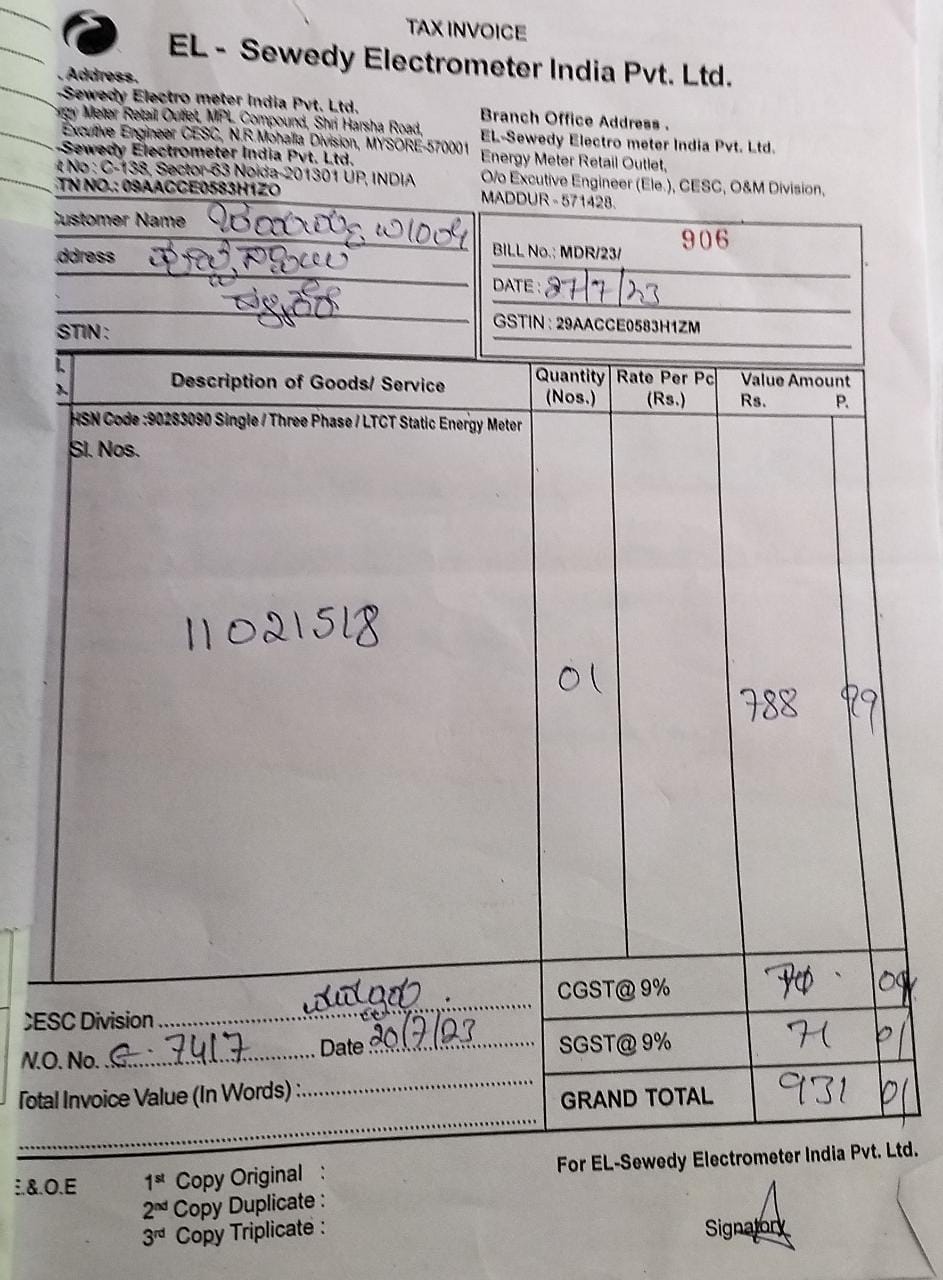 TAX INVOICE
EL - Sewedy Electrometer India Pvt. Ltd.
Address.
-Sewedy Electro meter India Pvt. Ltd.
Meter Retail Outlet, MPL Compound, Shri Harsha Road,
Excutive Engineer CESC, N.R.Mohalla Division, MYSORE-570001
-Sewedy Electrometer India Pvt. Ltd.
t No : C-138, Sector-63 Noida-201301 UP, INDIA
TN NO.: 09AACCE0583H1ZO
Branch Office Address .
EL-Sewedy Electro meter India Pvt. Ltd.
Energy Meter Retail Outlet,
O/o Excutive Engineer (Ele.), CESC, O&M Division,
MADDUR - 571428.
ustomer Name
ddress
STIN :
BILL No.: MDR/23/ 906
DATE : 27/7/23
GSTIN : 29AACCE0583H1ZM
Description of Goods/ Service
Quantity (Nos.)
Rate Per Pc (Rs.)
Value Amount
Rs. P.
HSN Code :90283090 Single / Three Phase / LTCT Static Energy Meter
Sl. Nos.
11021518
01
788
CGST@ 9%
SGST@ 9% 71 01
GRAND TOTAL 931 01
CESC Division
W.O. No. 7417 Date 20/7/23
Total Invoice Value (In Words) :
E.&.O.E
1st Copy Original :
2nd Copy Duplicate :
3rd Copy Triplicate :
For EL-Sewedy Electrometer India Pvt. Ltd.
Signatory